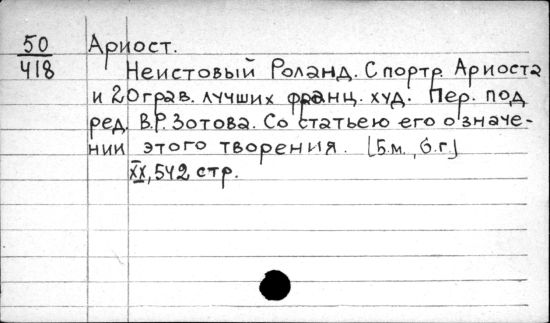 50 Ариост.
418 Неистовый Роланд. С портр. Ариоста
и 20 грав. лучших франц. худ. Пер. под
ред. В.Р. Зотова. Со статьею его о значе-
нии этого творения. [Б.м., б.г.]
XX, 542 стр.